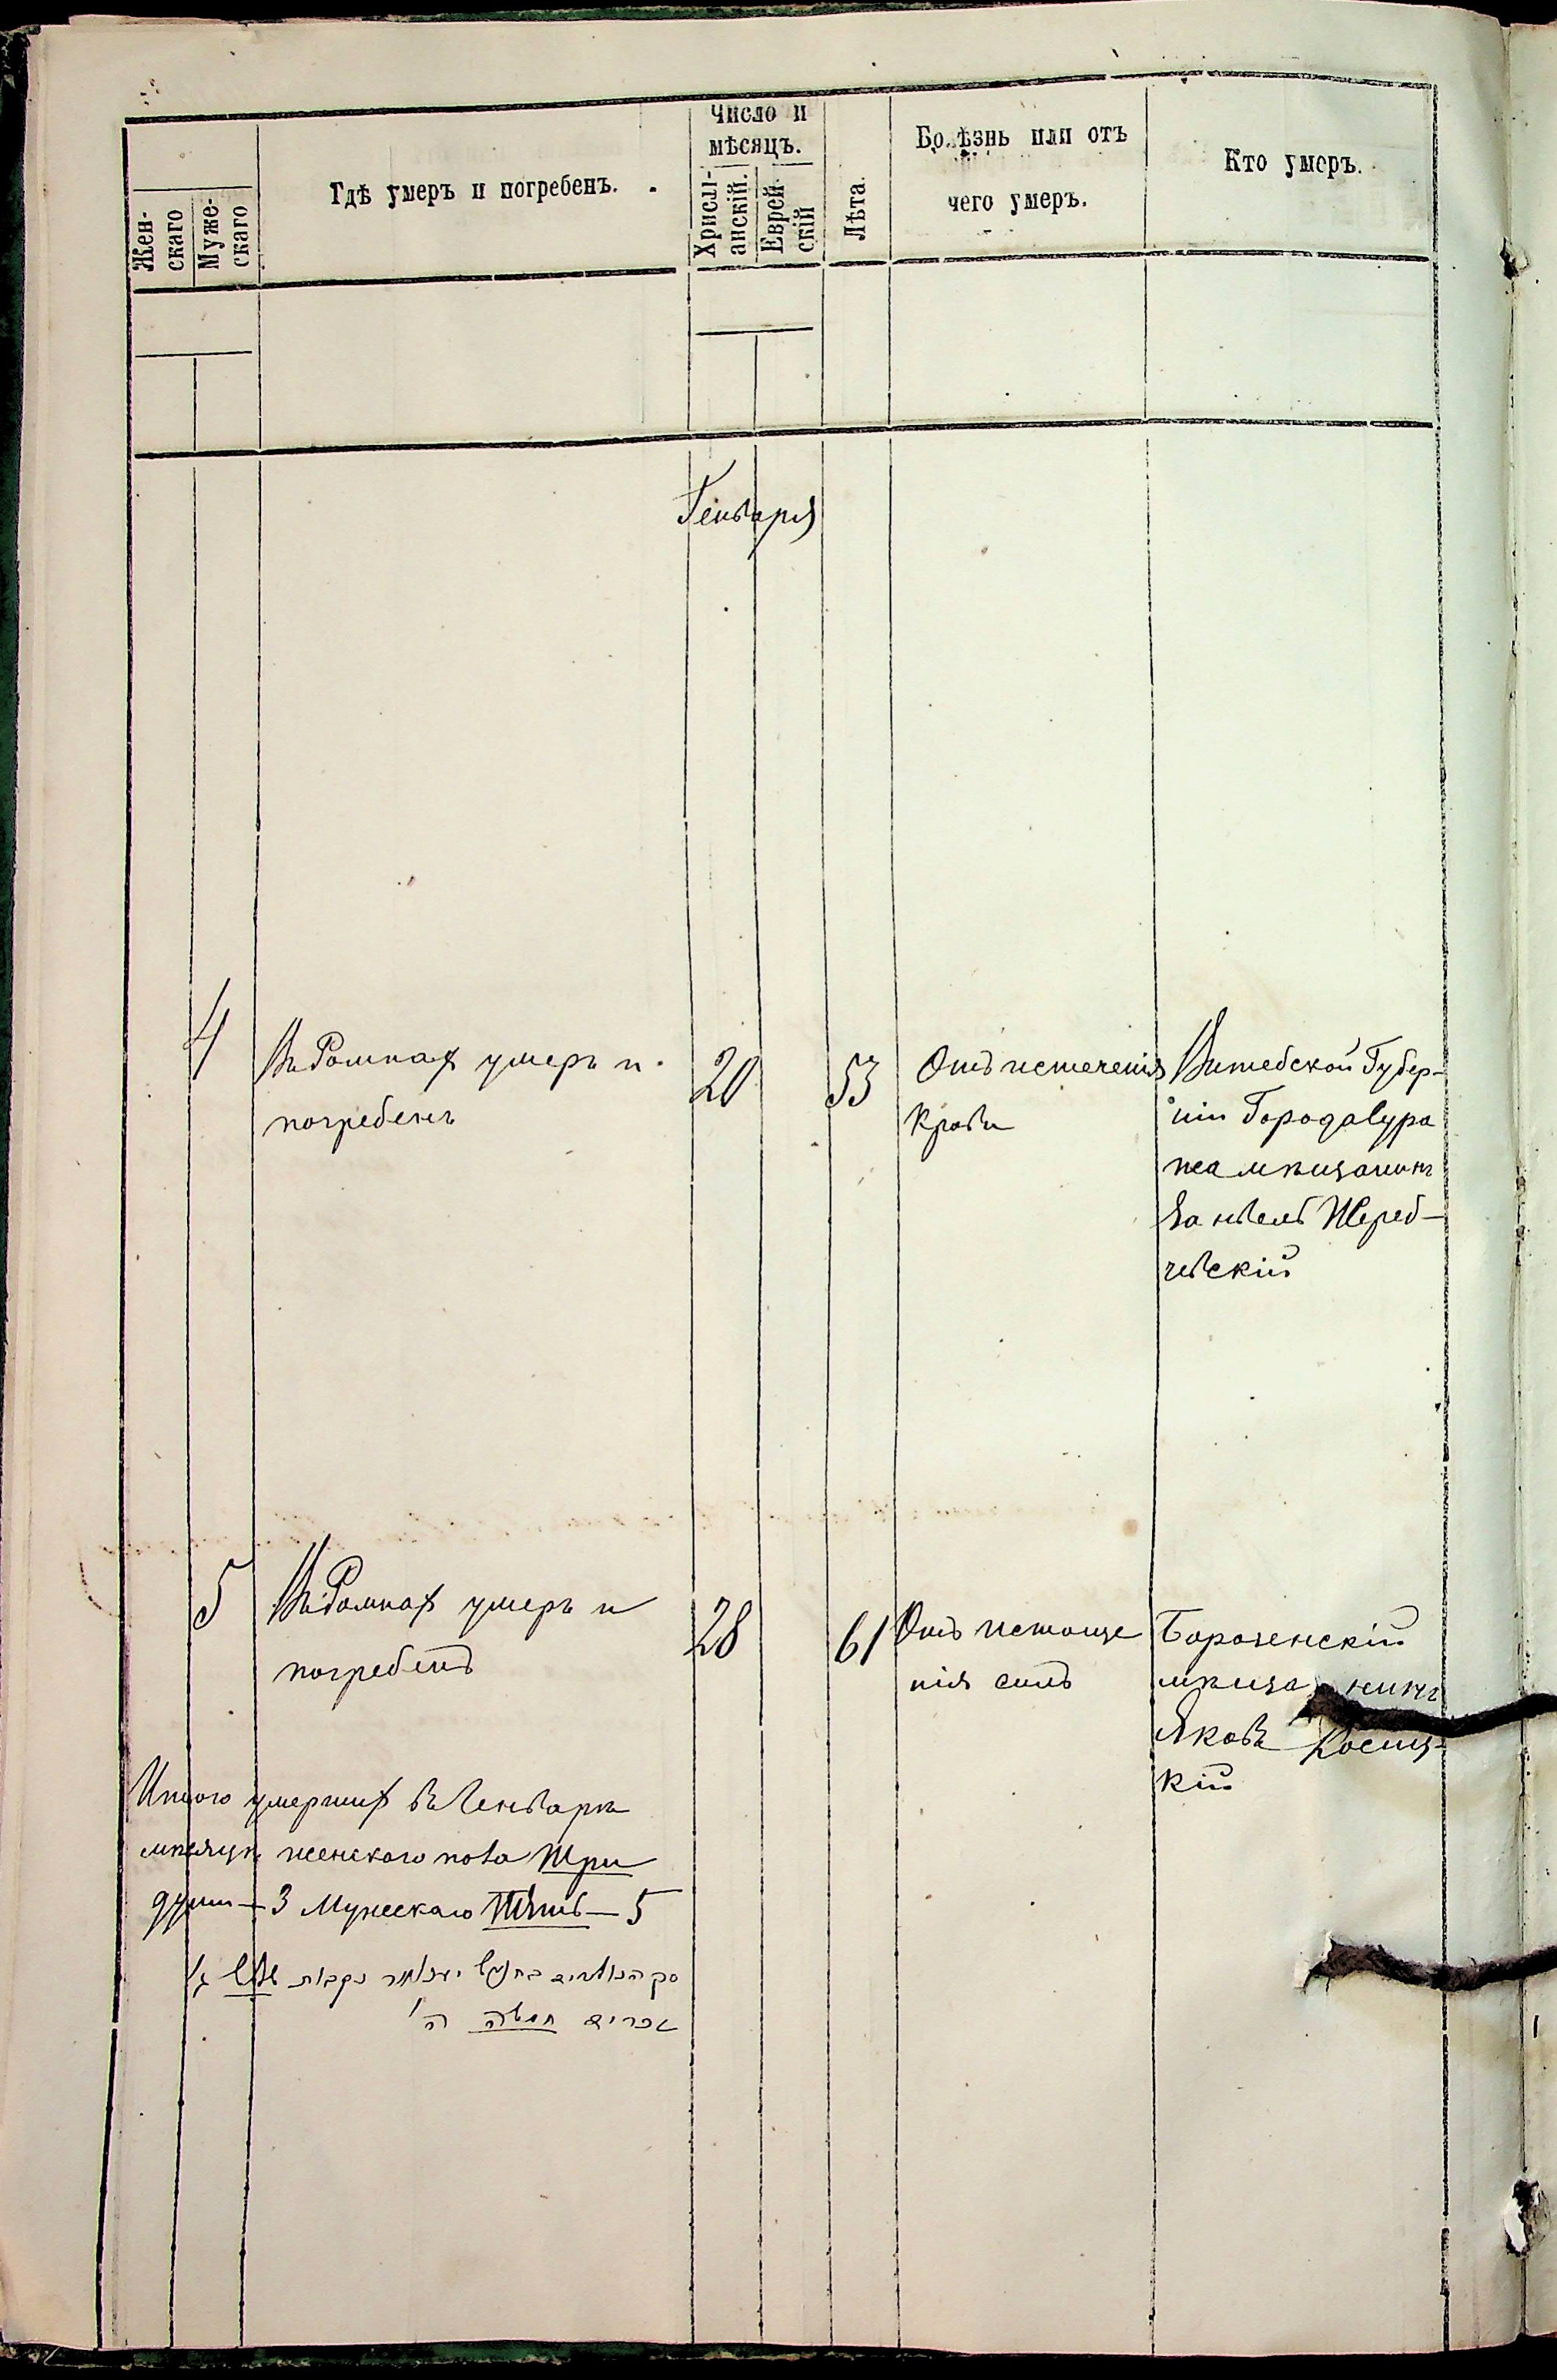 Число и
мѣсяцъ.
Жен-
скаго
Муже-
скаго
Гдѣ умеръ и погребенъ.
Христі-
анскій.
Еврей
скій
Лѣта.
Болѣзнь или отъ
чего умеръ.
Кто умеръ.
Генваря
4
Въ Ромнах умеръ и
погребенъ
20
53
Отъ истеченія
крови
Витебской Губер-
ніи Города
мѣщанинъ
Жереб-
чевскій
5
Въ Ромнах умеръ и
погребенъ
28
61
Отъ истоще
нія силъ
Борзенскій
мѣщанинъ
Яковъ
кій
Итого умерших въ Генварѣ
мѣсяцѣ женскаго пола три
души — 3 Мужескаго Пять — 5
נקבות שלש ג'
זכרים חמשה ה'